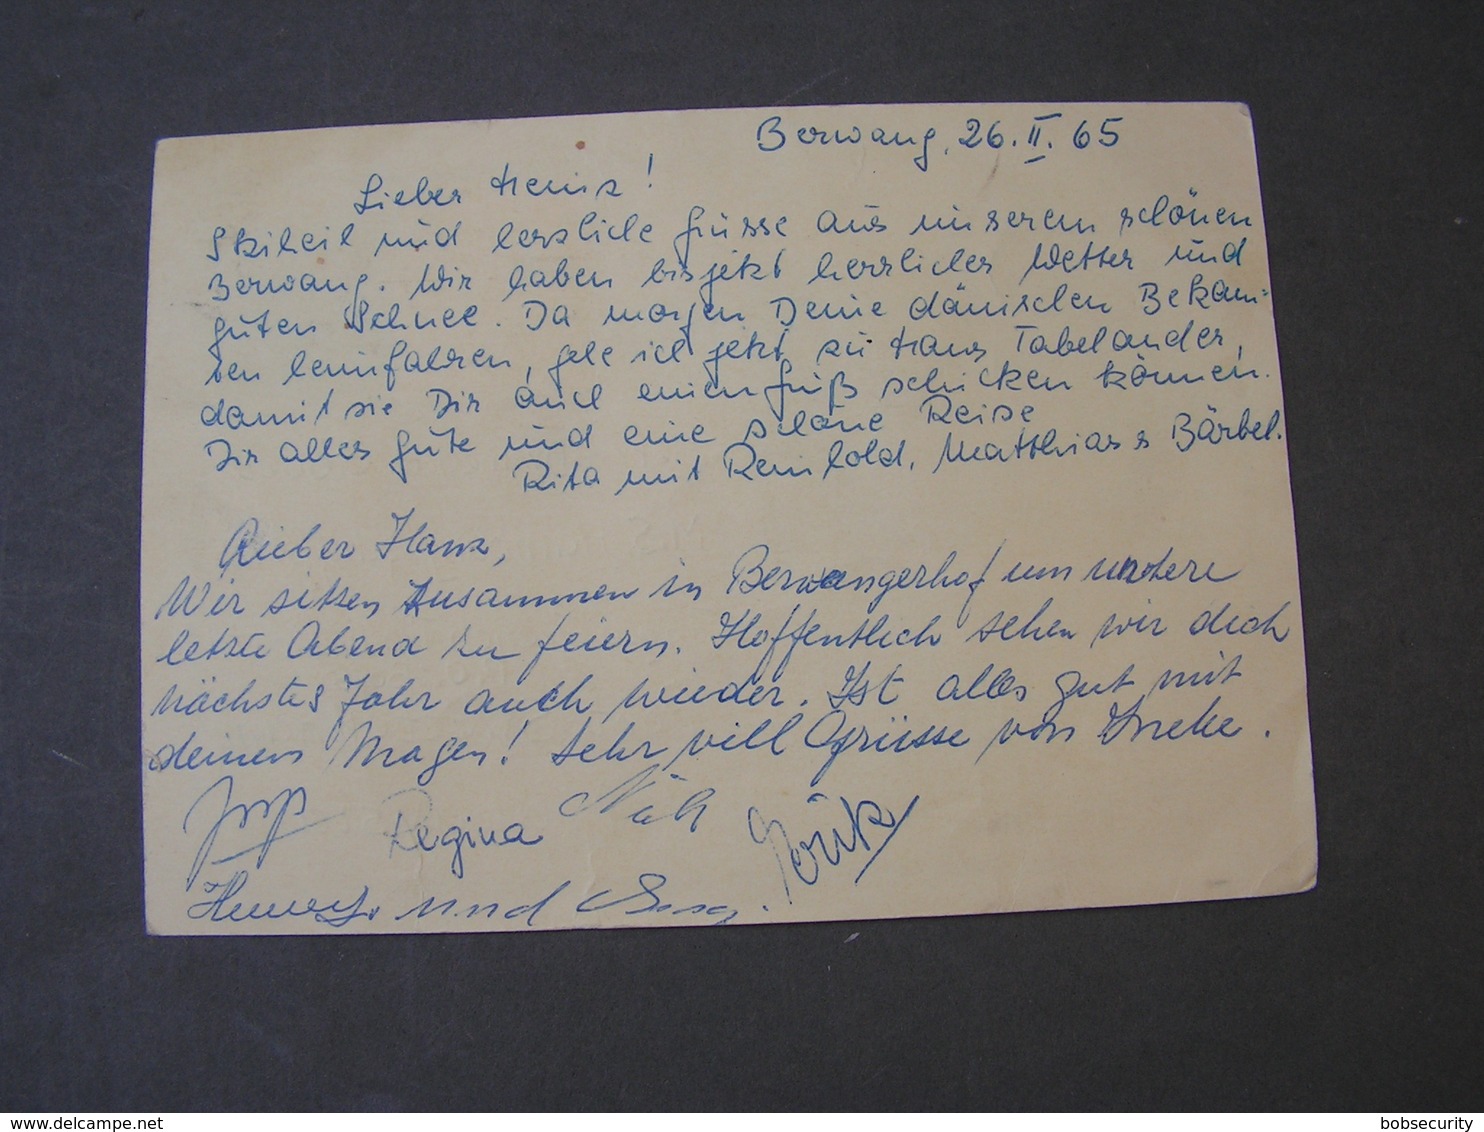 Berwang, 26.II.65
Lieber Heinz!
Skiheil und herzliche Grüsse aus unserem schönen
Berwang. Wir haben bis jetzt herrliches Wetter und
guten Schnee. Da morgen Deine dänischen Bekann=
ten heimfahren, gehe ich jetzt zu Hans Tabelander,
damit sie Dir auch einen Gruß schicken können.
Dir alles Gute und eine schöne Reise
Rita mit Reinhold, Matthias & Bärbel.
Lieber Hans,
Wir sitzen zusammen in Berwangerhof um unsere
letzte Abend zu feiern. Hoffentlich sehen wir dich
nächstes Jahr auch wieder. Ist alles gut mit
deinem Magen! Sehr vill Grüsse von
Regina
Erik
und
delcampe.net
bobsecurity